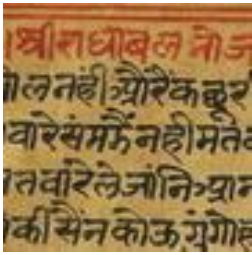 ।श्रीराधाबल लोज
ोल नही औरैं क छूर
वारे संमझैं नही मतव
मतवारे ले जांनि प्रान
की सैंन कोऊ गुंगोह